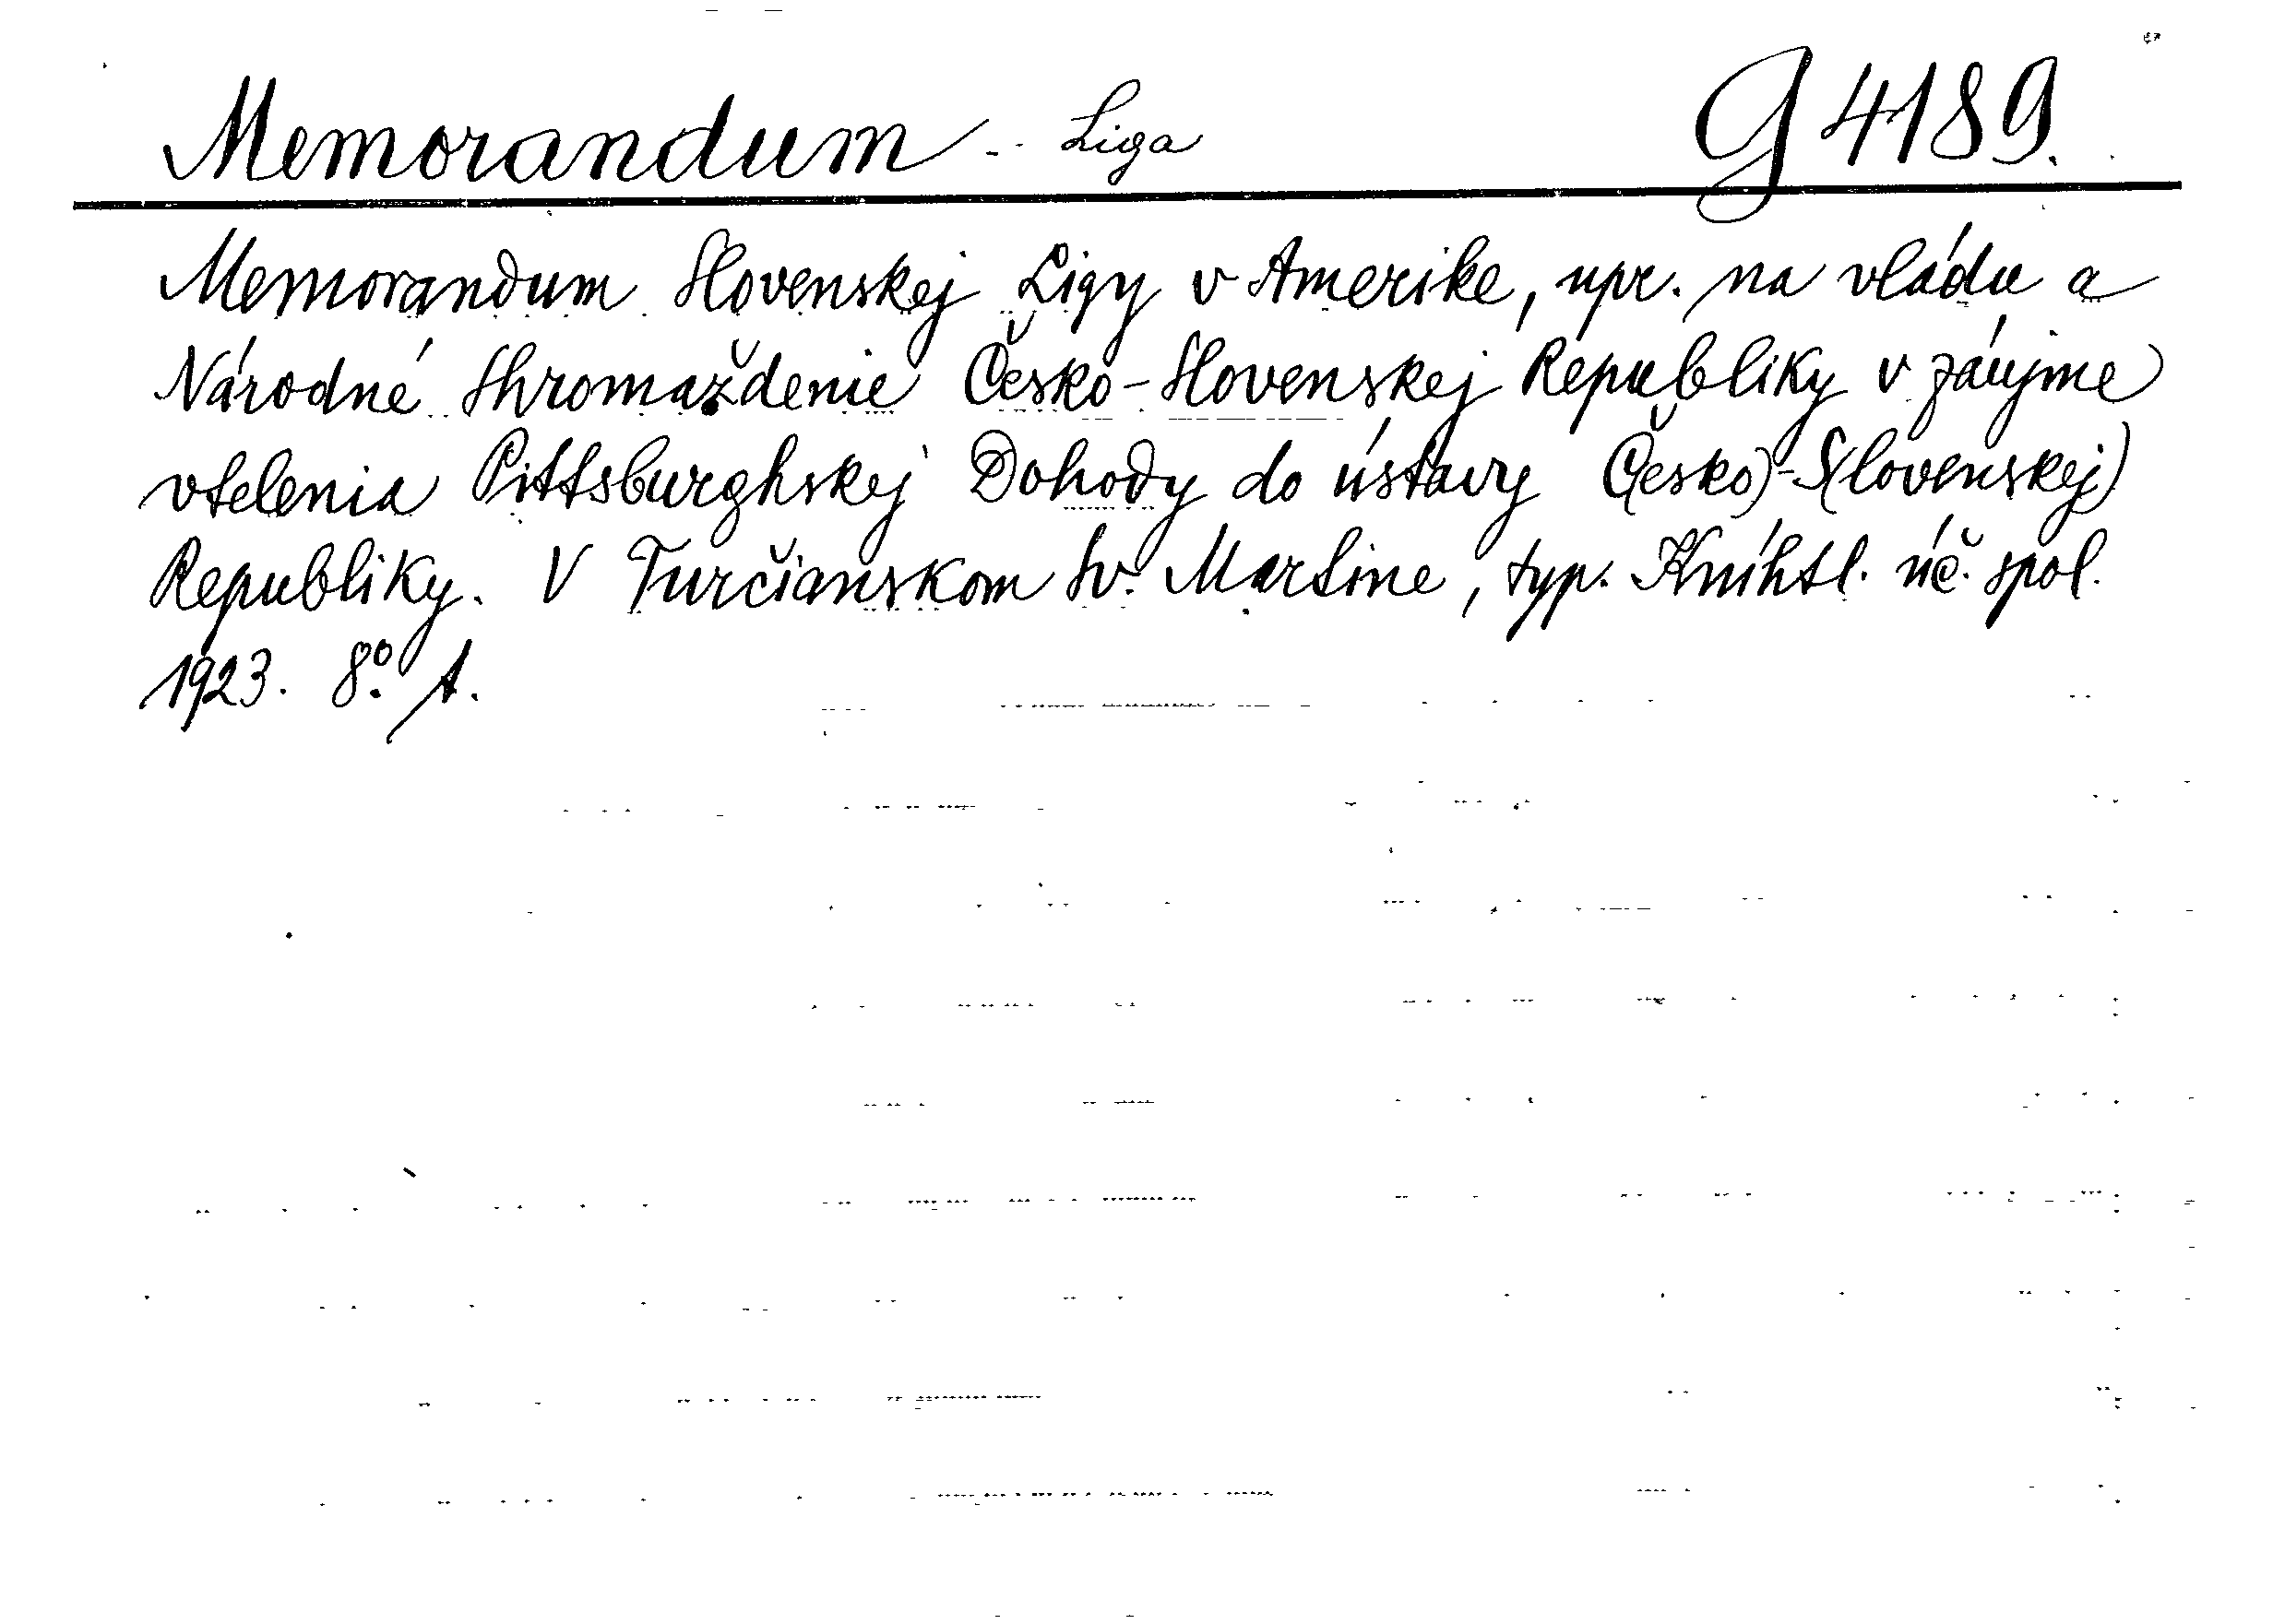 Memorandum - Liga G 4189.
Memorandum Slovenskej Ligy v Amerike, upr. na vládu a
Národné Shromaždenie Česko-Slovenskej Republiky v záujme
vtelenia Pittsburghskej Dohody do ústavy Č(esko)-S(lovenskej)
Republiky. V Turčianskom Sv. Martine, typ. Kníhtl. úč. spol.
1923. 8°.